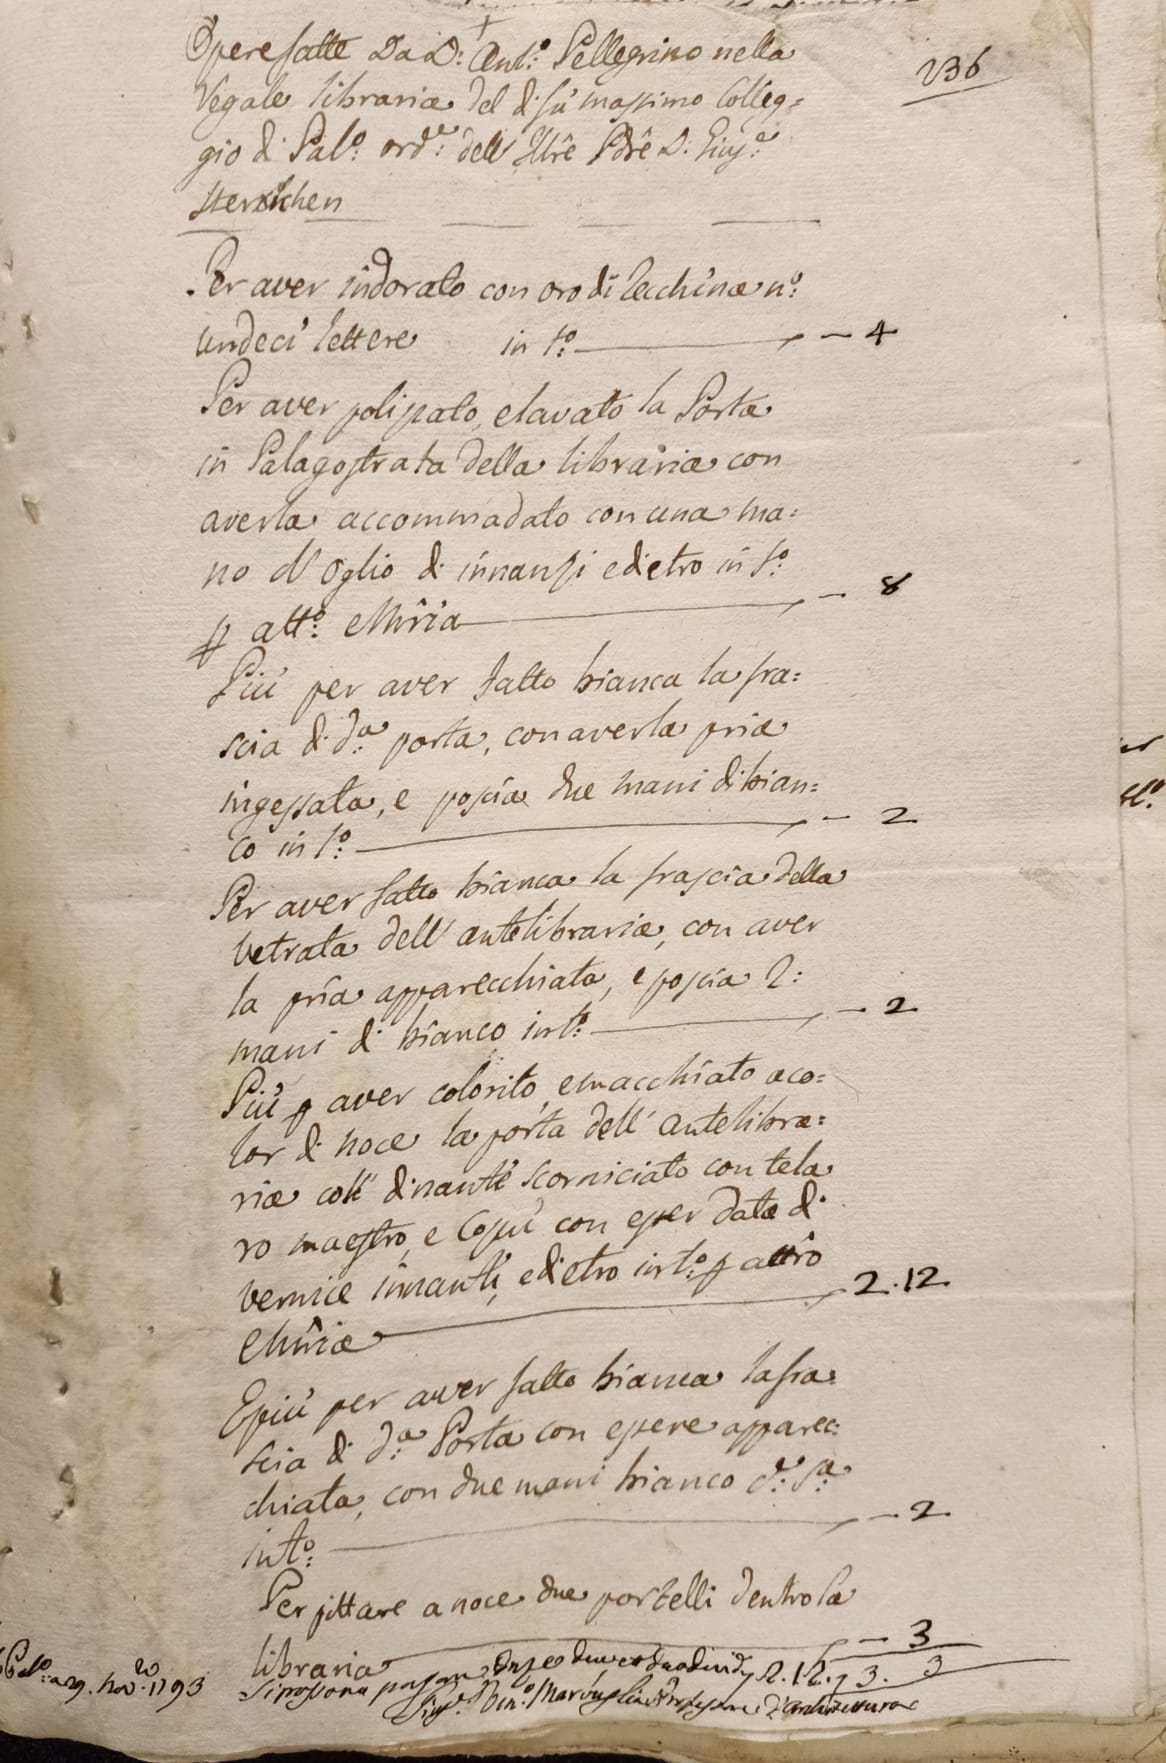 236
Opere fatte Da D: Ant:º Pellegrino nella
Regale libraria del di fù massimo Colleg=
gio di Pal:º ord:e dell' Ill͂re Pd͂re D: Gius:e
Sterzinhen
Per aver indorato con oro di Zecchina n:º
undeci lettere in t:º — 4
Per aver polizzato, e lavato la Porta
in Palagostrata della libraria con
averla accommadato con una ma=
no d'oglio di innanzi e dietro in t:º
p att:º e Mr̃ia — 8
Più per aver fatto bianca la fra=
scia di d:a porta, con averla pria
ingessata, e poscia due mani di bian=
co in t:º — 2
Per aver fatto bianca la frascia della
Vetrata dell' antelibraria, con aver
la pria apparecchiata, e poscia 2:
mani di bianco in t:º — 2
Più p aver colorito, e macchiato a co=
lor di noce la porta dell' antelibra=
ria coll' dinanti scorniciato con tela
ro maestro, e Cossì con esser data di
vernice innanti, e dietro in t:º p attr̃o
e Mr̃ia 2.12
E più per aver fatto bianca la fra=
scia di d:a Porta con essere apparec=
chiata, con due mani bianco
in t:º — 2
Per pittare a noce due portelli dentro la
libraria — 3
Si possono pagare onze due, e 3. 3
Pal:º a 29. Nov:re 1793
Gius:e Ven:º Marvuglia Professore d'Architettura